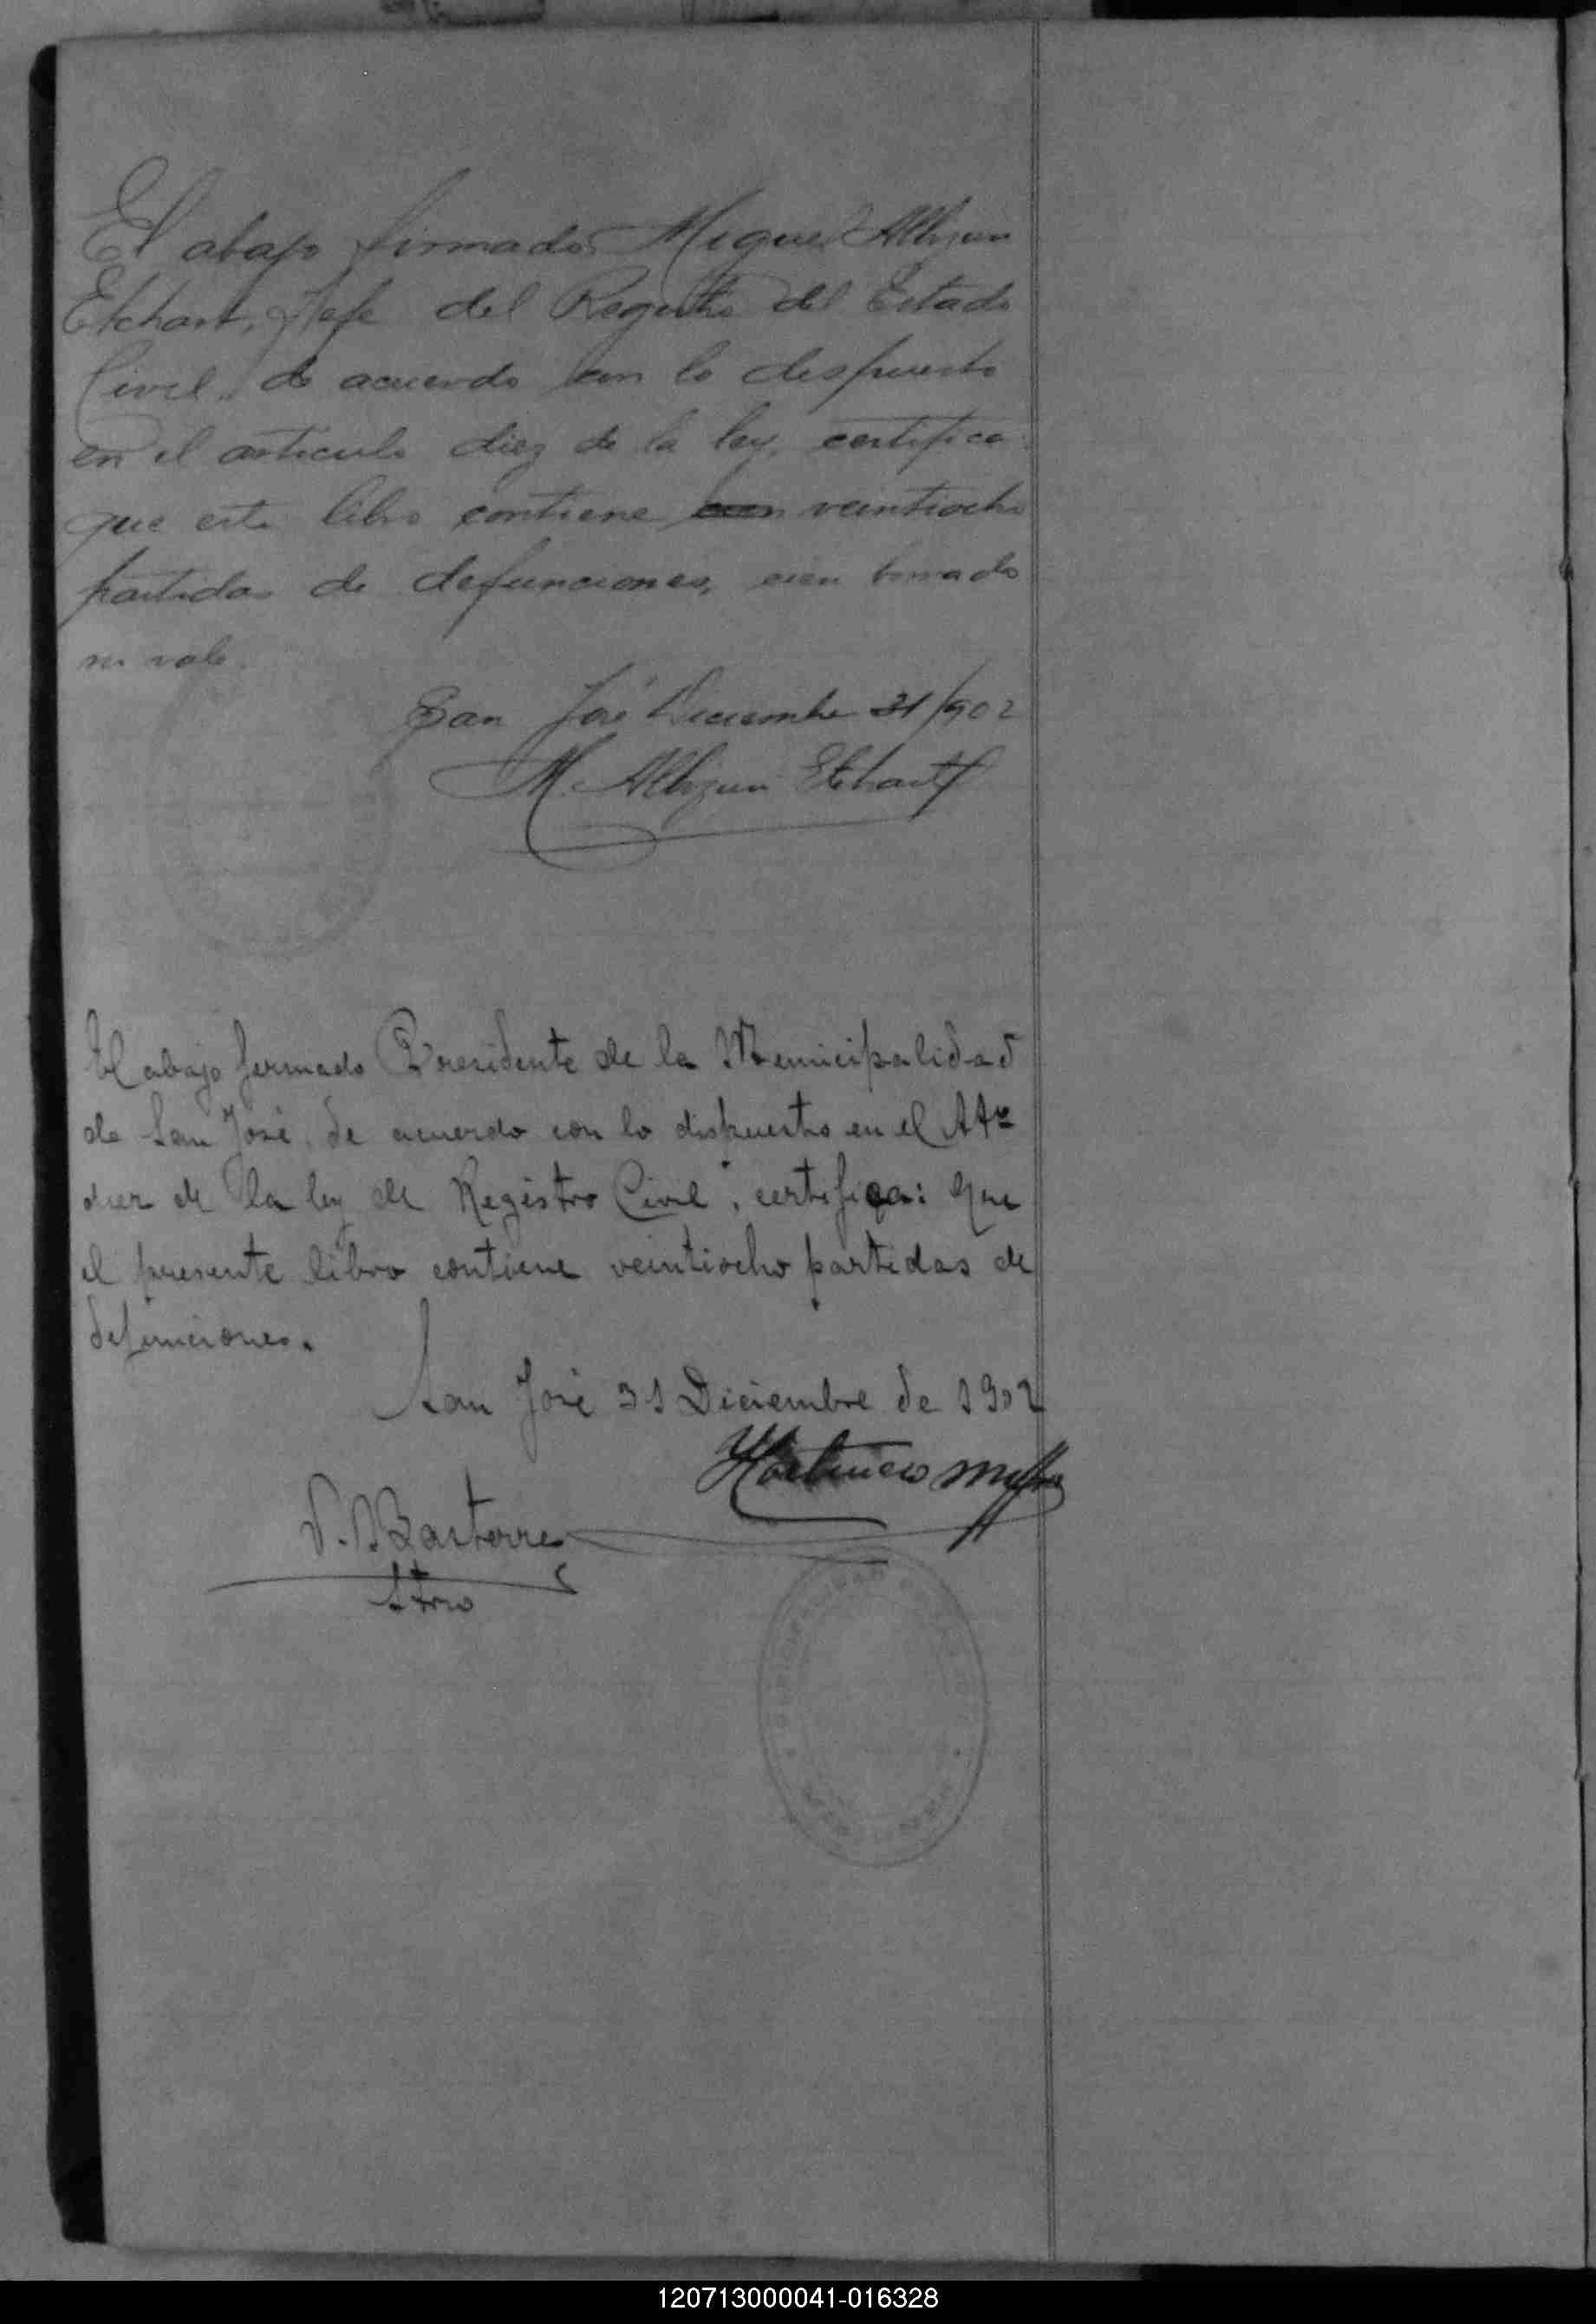 El abajo firmado Miguel
Etchart, Jefe del Registro del Estado
Civil, de acuerdo con lo dispuesto
en el articulo diez de la ley, certifico
que este libro contiene cien veintiocho
partidas de defunciones, cien borrado
no vale.
San José Diciembre 31/902
M. Etchart
El abajo firmado Presidente de la Municipalidad
de San José, de acuerdo con lo dispuesto en el
diez de la ley de Registro Civil, certifica: que
el presente libro contiene veintiocho partidas de
defunciones.
San José 31 Diciembre de 1902
Strio
120713000041-016328